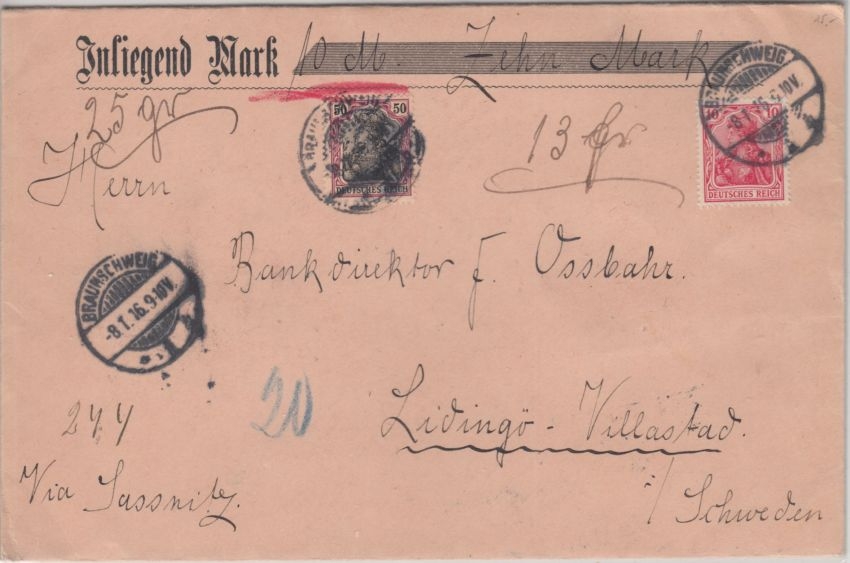 15.-
Inliegend Mark 10 M. Zehn Mark
25 gr
50 50
DEUTSCHES REICH
13 fr
BRAUNSCHWEIG
-8.1.16.9-10V.
10 10
DEUTSCHES REICH
Herrn
Bankdirektor f. Ossbahr.
BRAUNSCHWEIG
-8.1.16.9-10V.
244
20
Lidingö - Villastad.
Via Sassnitz.
i/Schweden